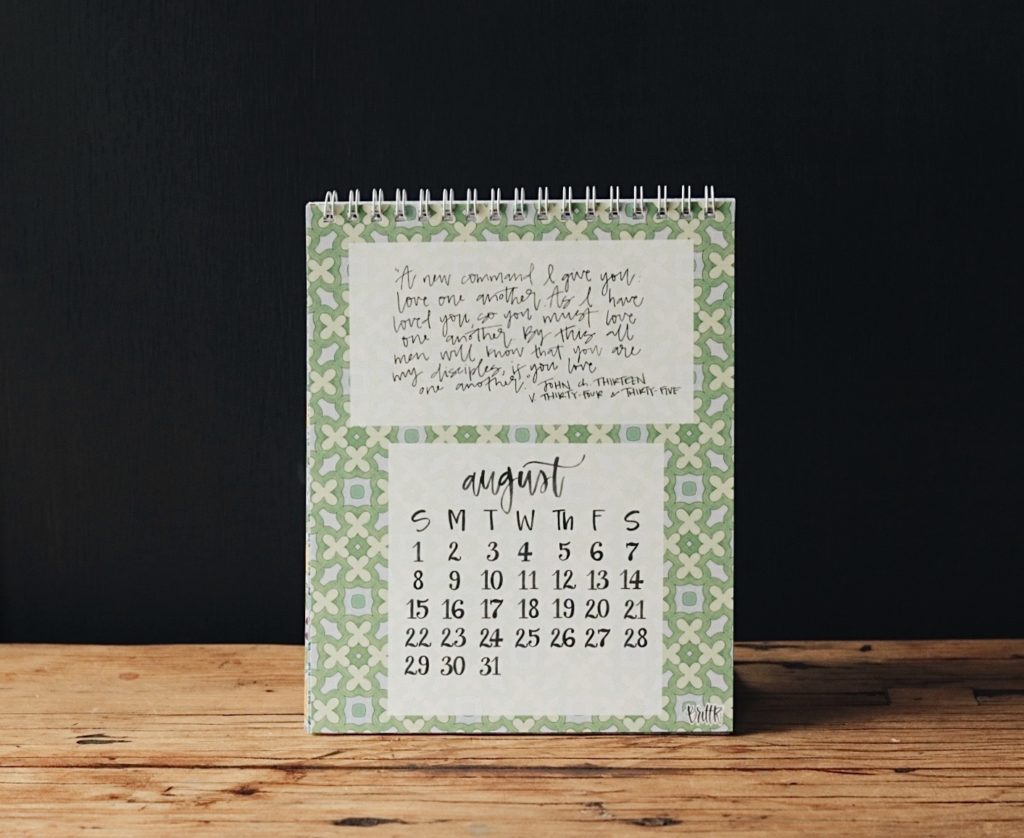 "A new command I give you:
love one another. As I have
loved you, so you must love
one another. By this all
men will know that you are
my disciples, if you love
one another." JOHN ch. THIRTEEN
V. THIRTY-FOUR & THIRTY-FIVE
august
S M T W Th F S
1 2 3 4 5 6 7
8 9 10 11 12 13 14
15 16 17 18 19 20 21
22 23 24 25 26 27 28
29 30 31